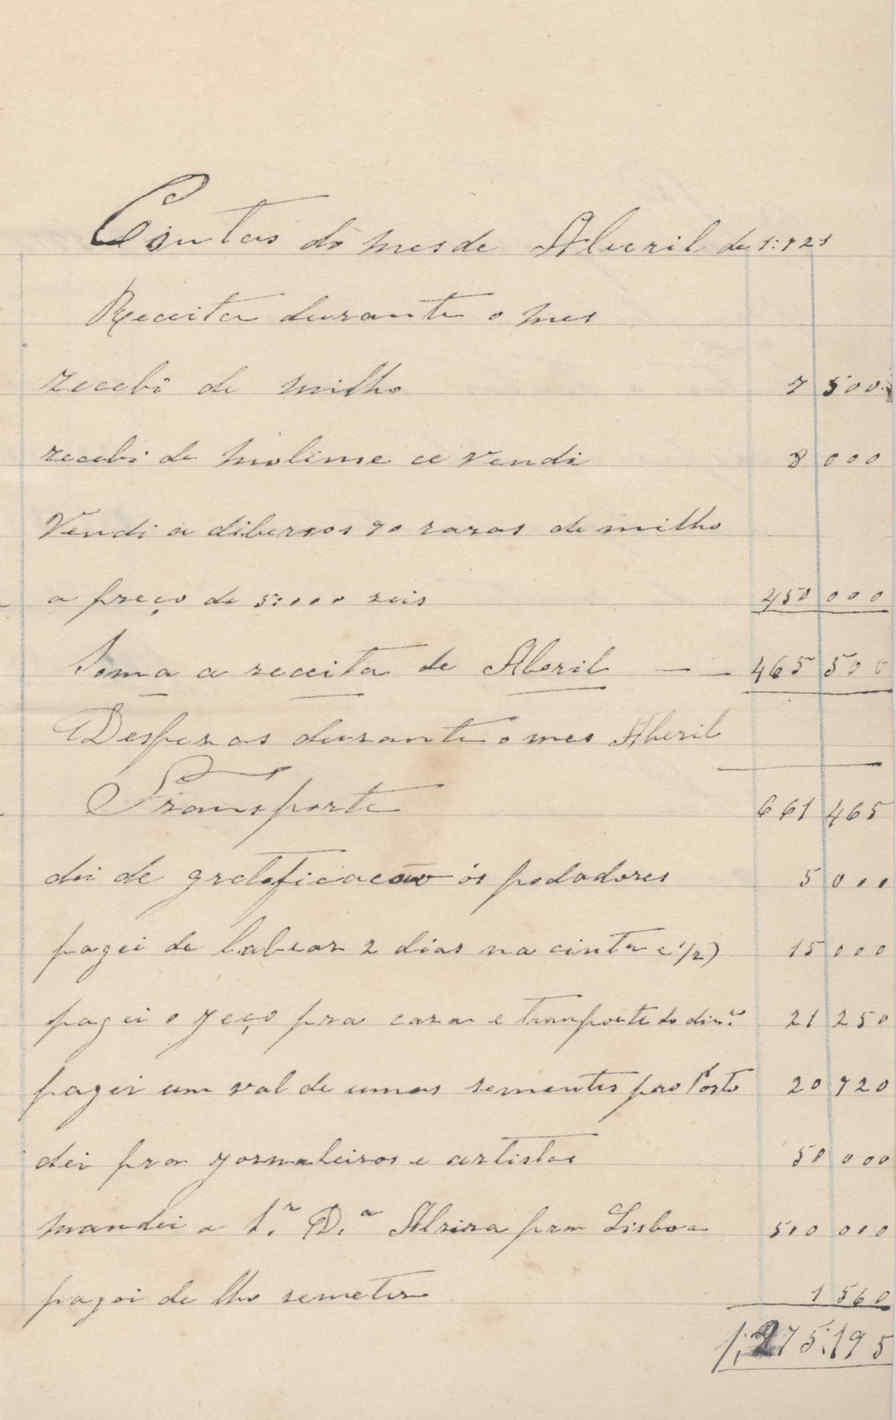 Contas do mes de Abril de 1:921
Receita durante o mes
recebi de milho 7 500
recebi de moline ce vendi 8 000
Vendi a diberços 90 razas de milho
a preço de 5:000 reis 450 000
Soma a receita de Aberil — 465 500
Despezas durante o mes Aberil
Transporte 661 465
dei de gratoficacão ós podadores 5 000
pagei de labrar 2 dias na cinta e 1/2) 15 000
pagei o jeço pra caza e tranporte do din.ro 21 250
pagei um val de umas sementes pro Porto 20 920
dei pra jornaleiros e artistas 50 000
mandei a S.ra D.a Alzira pra Lisboa 500 000
pagei de lho remeter 1 560
1:275:195